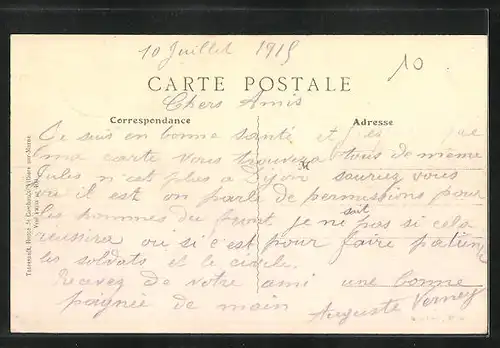 10 Juillet 1915
10
CARTE POSTALE
Chers Amis
Correspondance
Adresse
Je suis en bonne santé et j'es que
ma carte vous trouvera tous de même
Jules n'est plus a Dijon sauriez vous
ou il est on parle de permissions pour
les hommes du front je ne sait pas si cela
reussira ou si c'est pour faire patienté
les soldats et le civile.
Recevez de votre ami une bonne
poignée de main Auguste Verney